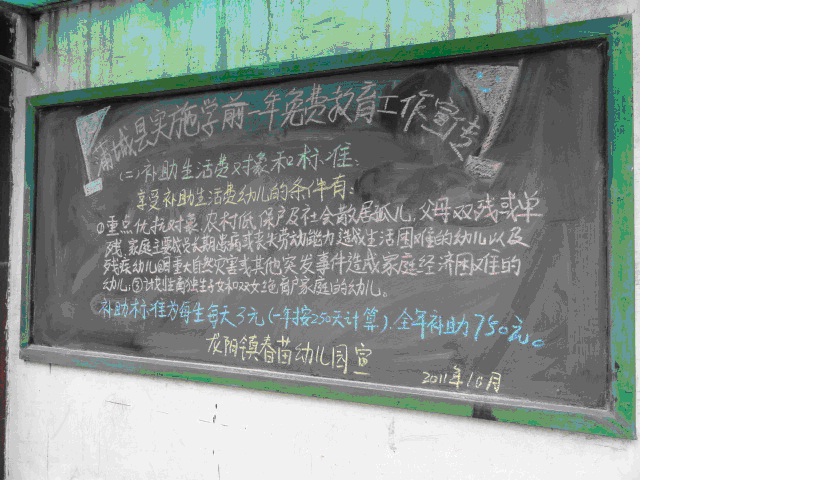 蒲城县实施学前一年免费教育工作宣传
(二)补助生活费对象和标准:
享受补助生活费幼儿的条件有:
①重点优抚对象、农村低保户及社会散居孤儿、父母双残或单
残、家庭主要成员长期患病或丧失劳动能力造成生活困难的幼儿以及
残疾幼儿②因重大自然灾害或其他突发事件造成家庭经济困难的
幼儿③计划生育独生子女和双女绝育户家庭的幼儿。
补助标准为每生每天3元(一年按250天计算).全年补助750元。
龙阳镇春苗幼儿园宣
2011年10月